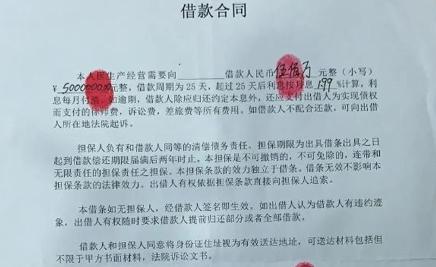 借款合同
本人因生产经营需要向 借款人民币伍佰万元整（小写）
￥5000000元整，借款周期为 25 天，超过 25 天后利息按月息 计算，利
息每月付清。如逾期，借款人除应归还约定本息外，还应支付出借人为实现债权
而支付的保师费，诉讼费，差旅费等所有费用。如借款人不配合还款，可向出借
人所在地法院起诉。
担保人负有和借款人同等的清偿债务责任。担保期限为出具借条出具之日
起到借款偿还期限届满后两年时止。本担保是不可撤销的，不可免除的，连带和
无限责任的担保责任之担保。本担保条款的效力独立于借条。借条无效不影响本
担保条款的法律效力。出借人有权依据担保条款直接向担保人追索。
本借条如无担保人，经借款人签名即生效。如出借人认为借款人有违约迹
象，出借人有权随时要求借款人提前归还部分或者全部借款。
借款人和担保人同意将身份证住址视为有效送达地址，可送达材料包括但
不限于甲方书面材料，法院诉讼文书。